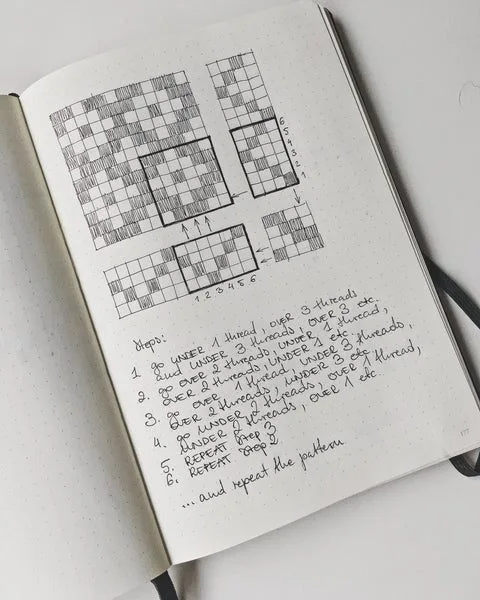 6
5
4
3
2
1
1 2 3 4 5 6
Steps:
1. go UNDER 1 thread, OVER 3 threads
and UNDER 3 threads, OVER 3 etc.
2. go OVER 2 threads, UNDER 1 thread,
OVER 2 threads, UNDER 1 etc
3. go OVER 1 thread, UNDER 3 threads,
OVER 2 threads, UNDER 3 etc
4. go UNDER 2 threads, OVER 1 thread,
UNDER 2 threads, OVER 1 etc
5. REPEAT STEP 3
6. REPEAT STEP 2
... and repeat the pattern